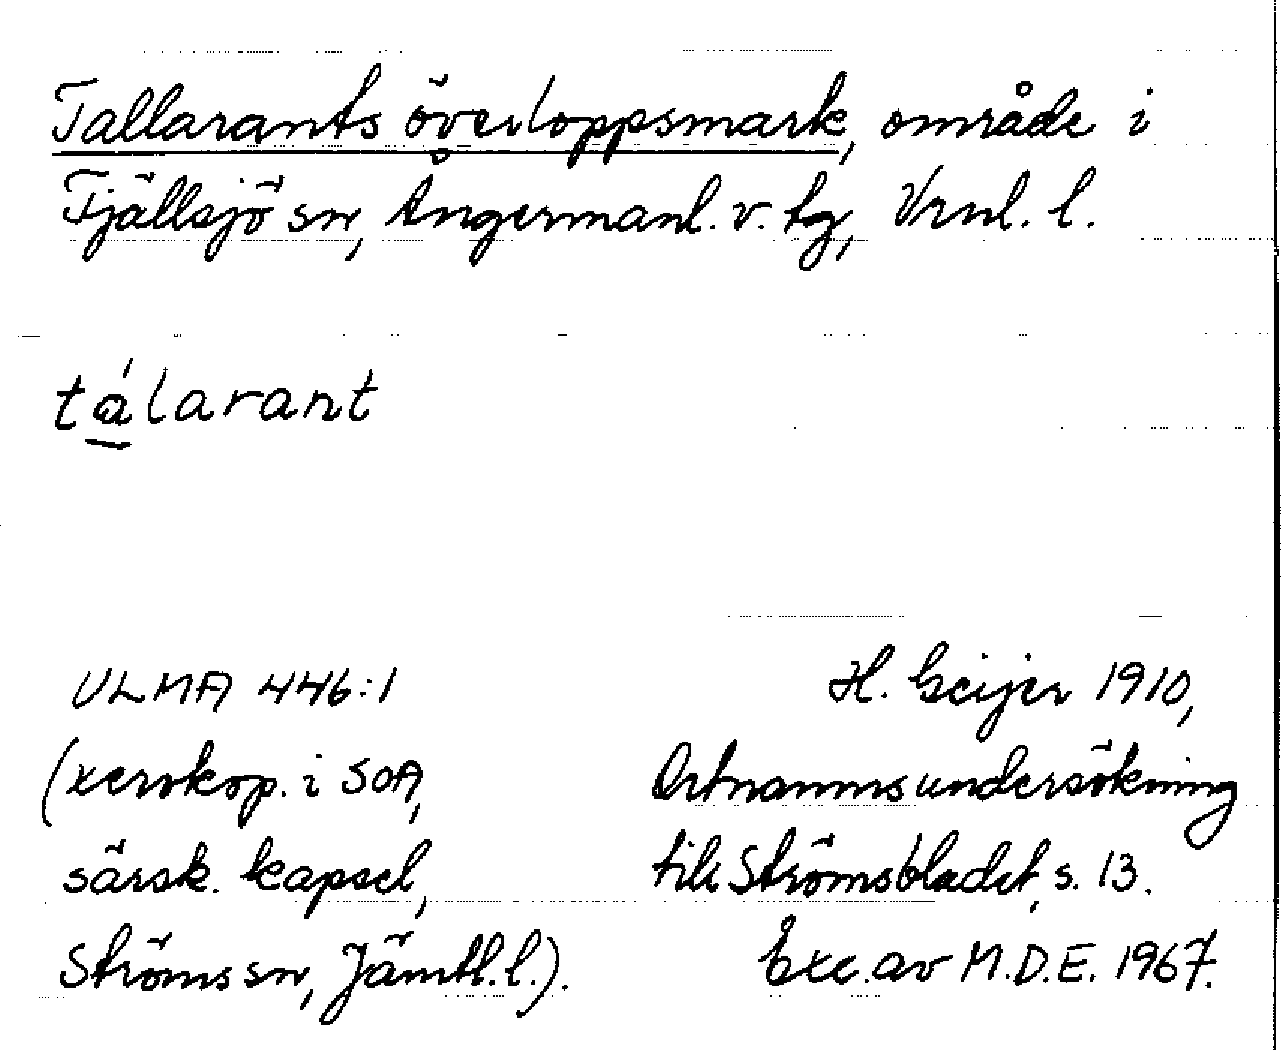 Tallarants överloppsmark, område i
Fjällsjö sn, Ångermanl. v. tg, Vrnl. l.
tálarant
ULMA 446:1
(xerokop. i SOA,
särsk. kapsel,
Ströms sn, Jämtl. l.).
H. Geijer 1910,
Ortnamnsundersökning
till Strömsbladet, s. 13.
Exc. av M.D.E. 1967.